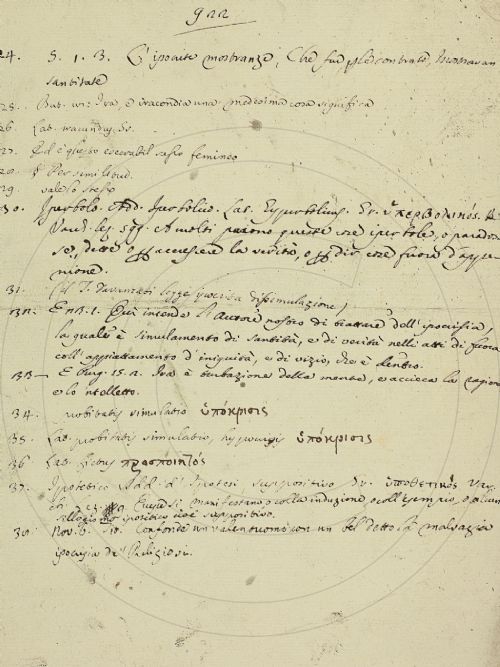 922
24. S. 1. B. L'ipocrite mostranze, Che fue contrate, mostravan
santitate
25. But. Ira, e iracondia una medesima cosa significa
26. Lat. iracundus Gr.
27. Ed è questo esecrabil sesso femineo
28. Per similitud.
29. vale lo stesso
30. Iperbolo. Add. Iperbolico. Lat. Gr. ὑπερβολικός.
A molti paiono queste cose iperbole, o
dette accrescere la verità, dir cose fuora d'
nione.
31. (Il T. Davanzati legge ipocrita dissimulazione)
32. E 1. Qui intende l'autore nostro di trattare dell'ipocrisia,
la quale è simulamento di santità, e di verità nelli atti di fuora
coll'appiattamento d'iniquità, e di vizio, che è dentro.
33. E Purg. 15. 2. Ira è turbazione della mente, e accieca la ragione
e lo 'ntelletto.
34. probitatis simulatio ὑπόκρισις
35. Lat. probitatis simulatio, hypocrisis ὑπόκρισις
36 Lat. fictus προσποιητός
37. Ipotetico Add. d'Ipotesi suppositivo Gr. ὑποθετικός
23. 9. manifestano colla induzione, o coll'esempio, o
sillogismo ipotetico cioè suppositivo.
38. Nov. 6. Confonde un valentuomo con un bel detto la malvagia
ipocrisia de' Religiosi.